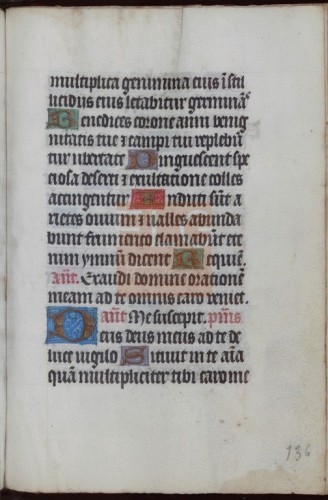 multiplica genimina eius ī stil
licidiis eius letabitur germinās
Benedices corone anni benig
nitatis tue ⁊ campi tui replebūt
tur ubertate Pinguescent spe
ciosa deserti ⁊ exultatione colles
accingentur Induti sūt a
rietes ouium ⁊ ualles abunda
bunt frumento clamabūt ete
nim ymnum dicent Requiē.
añt. Exaudi domine orationē
meam ad te omnis caro veniet.
añt Me suscepit. p̄mꝰ
Deus deus meus ad te de
luce vigilo Sitiuit in te aīa
mea quā multipliciter tibi caro me
136